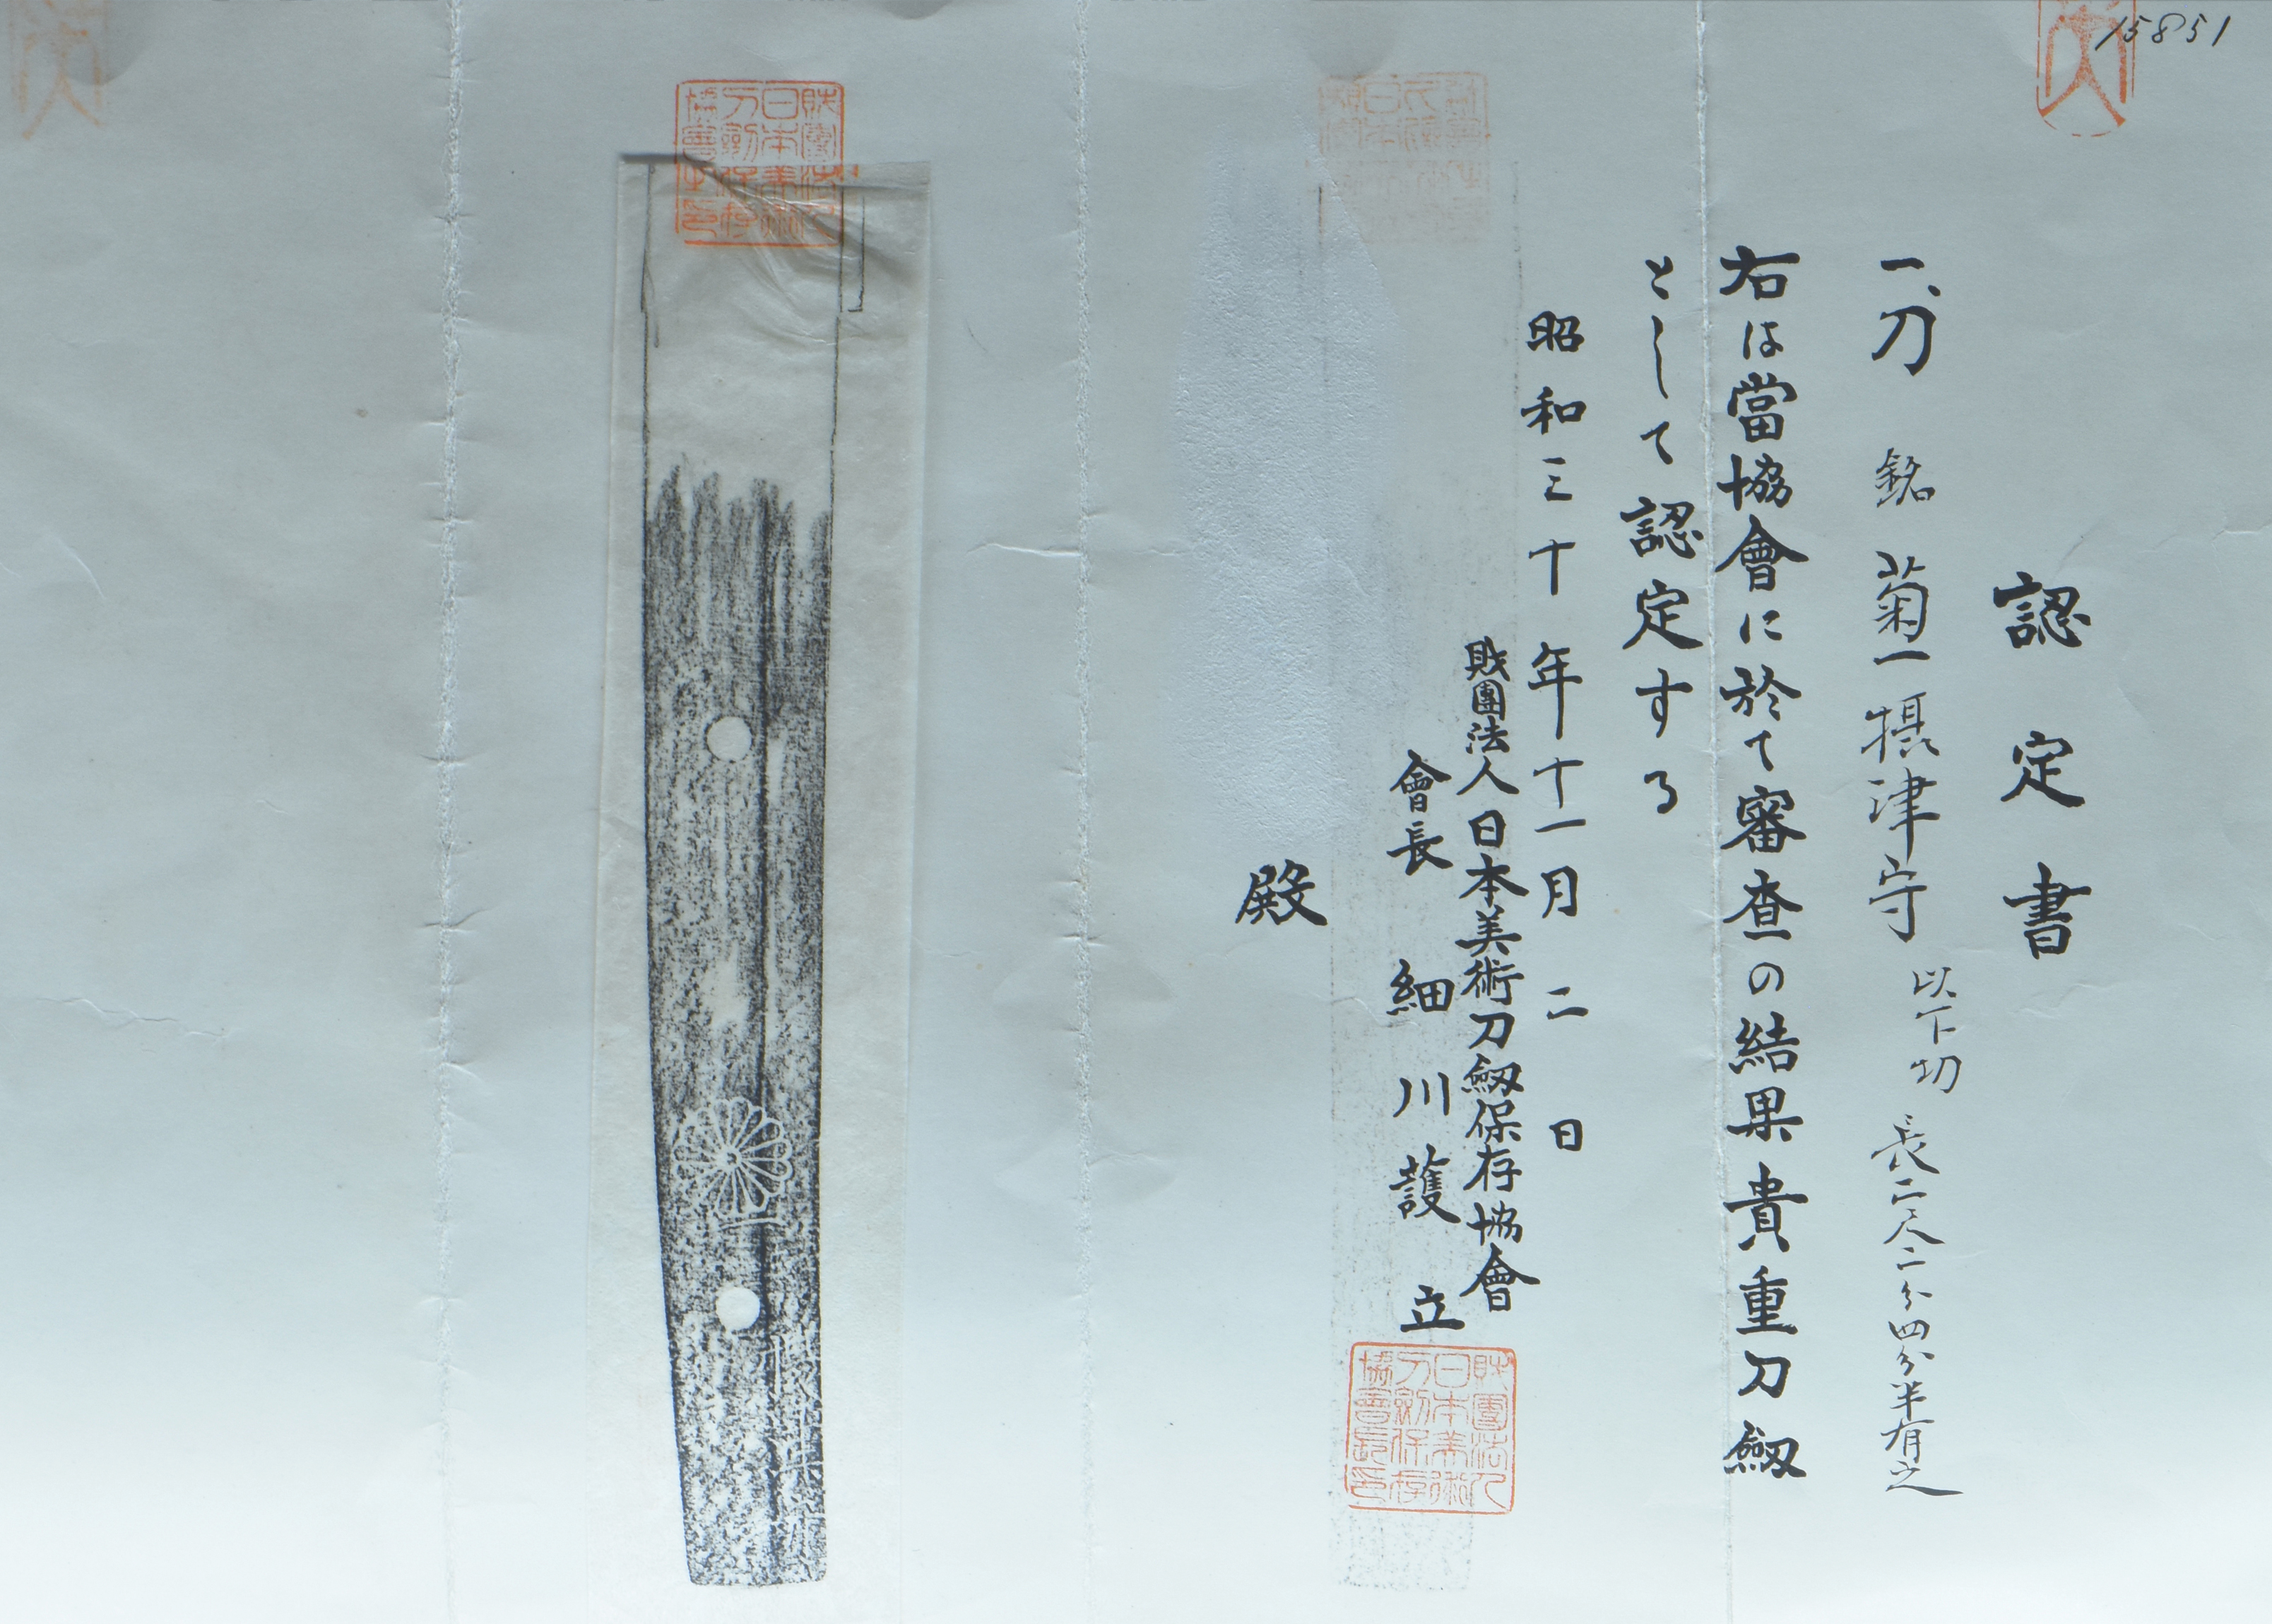 15851
認定書
一、刀 銘 菊一摂津守 以下切 長二尺二分四分半有之
右は當協會に於て審査の結果貴重刀劔
として認定する
昭和三十年十一月二日
財團法人日本美術刀劔保存協會
會長 細川護立
殿
財團法人日本美術刀劔保存協會長印
財團法人日本美術刀劔保存協會長印